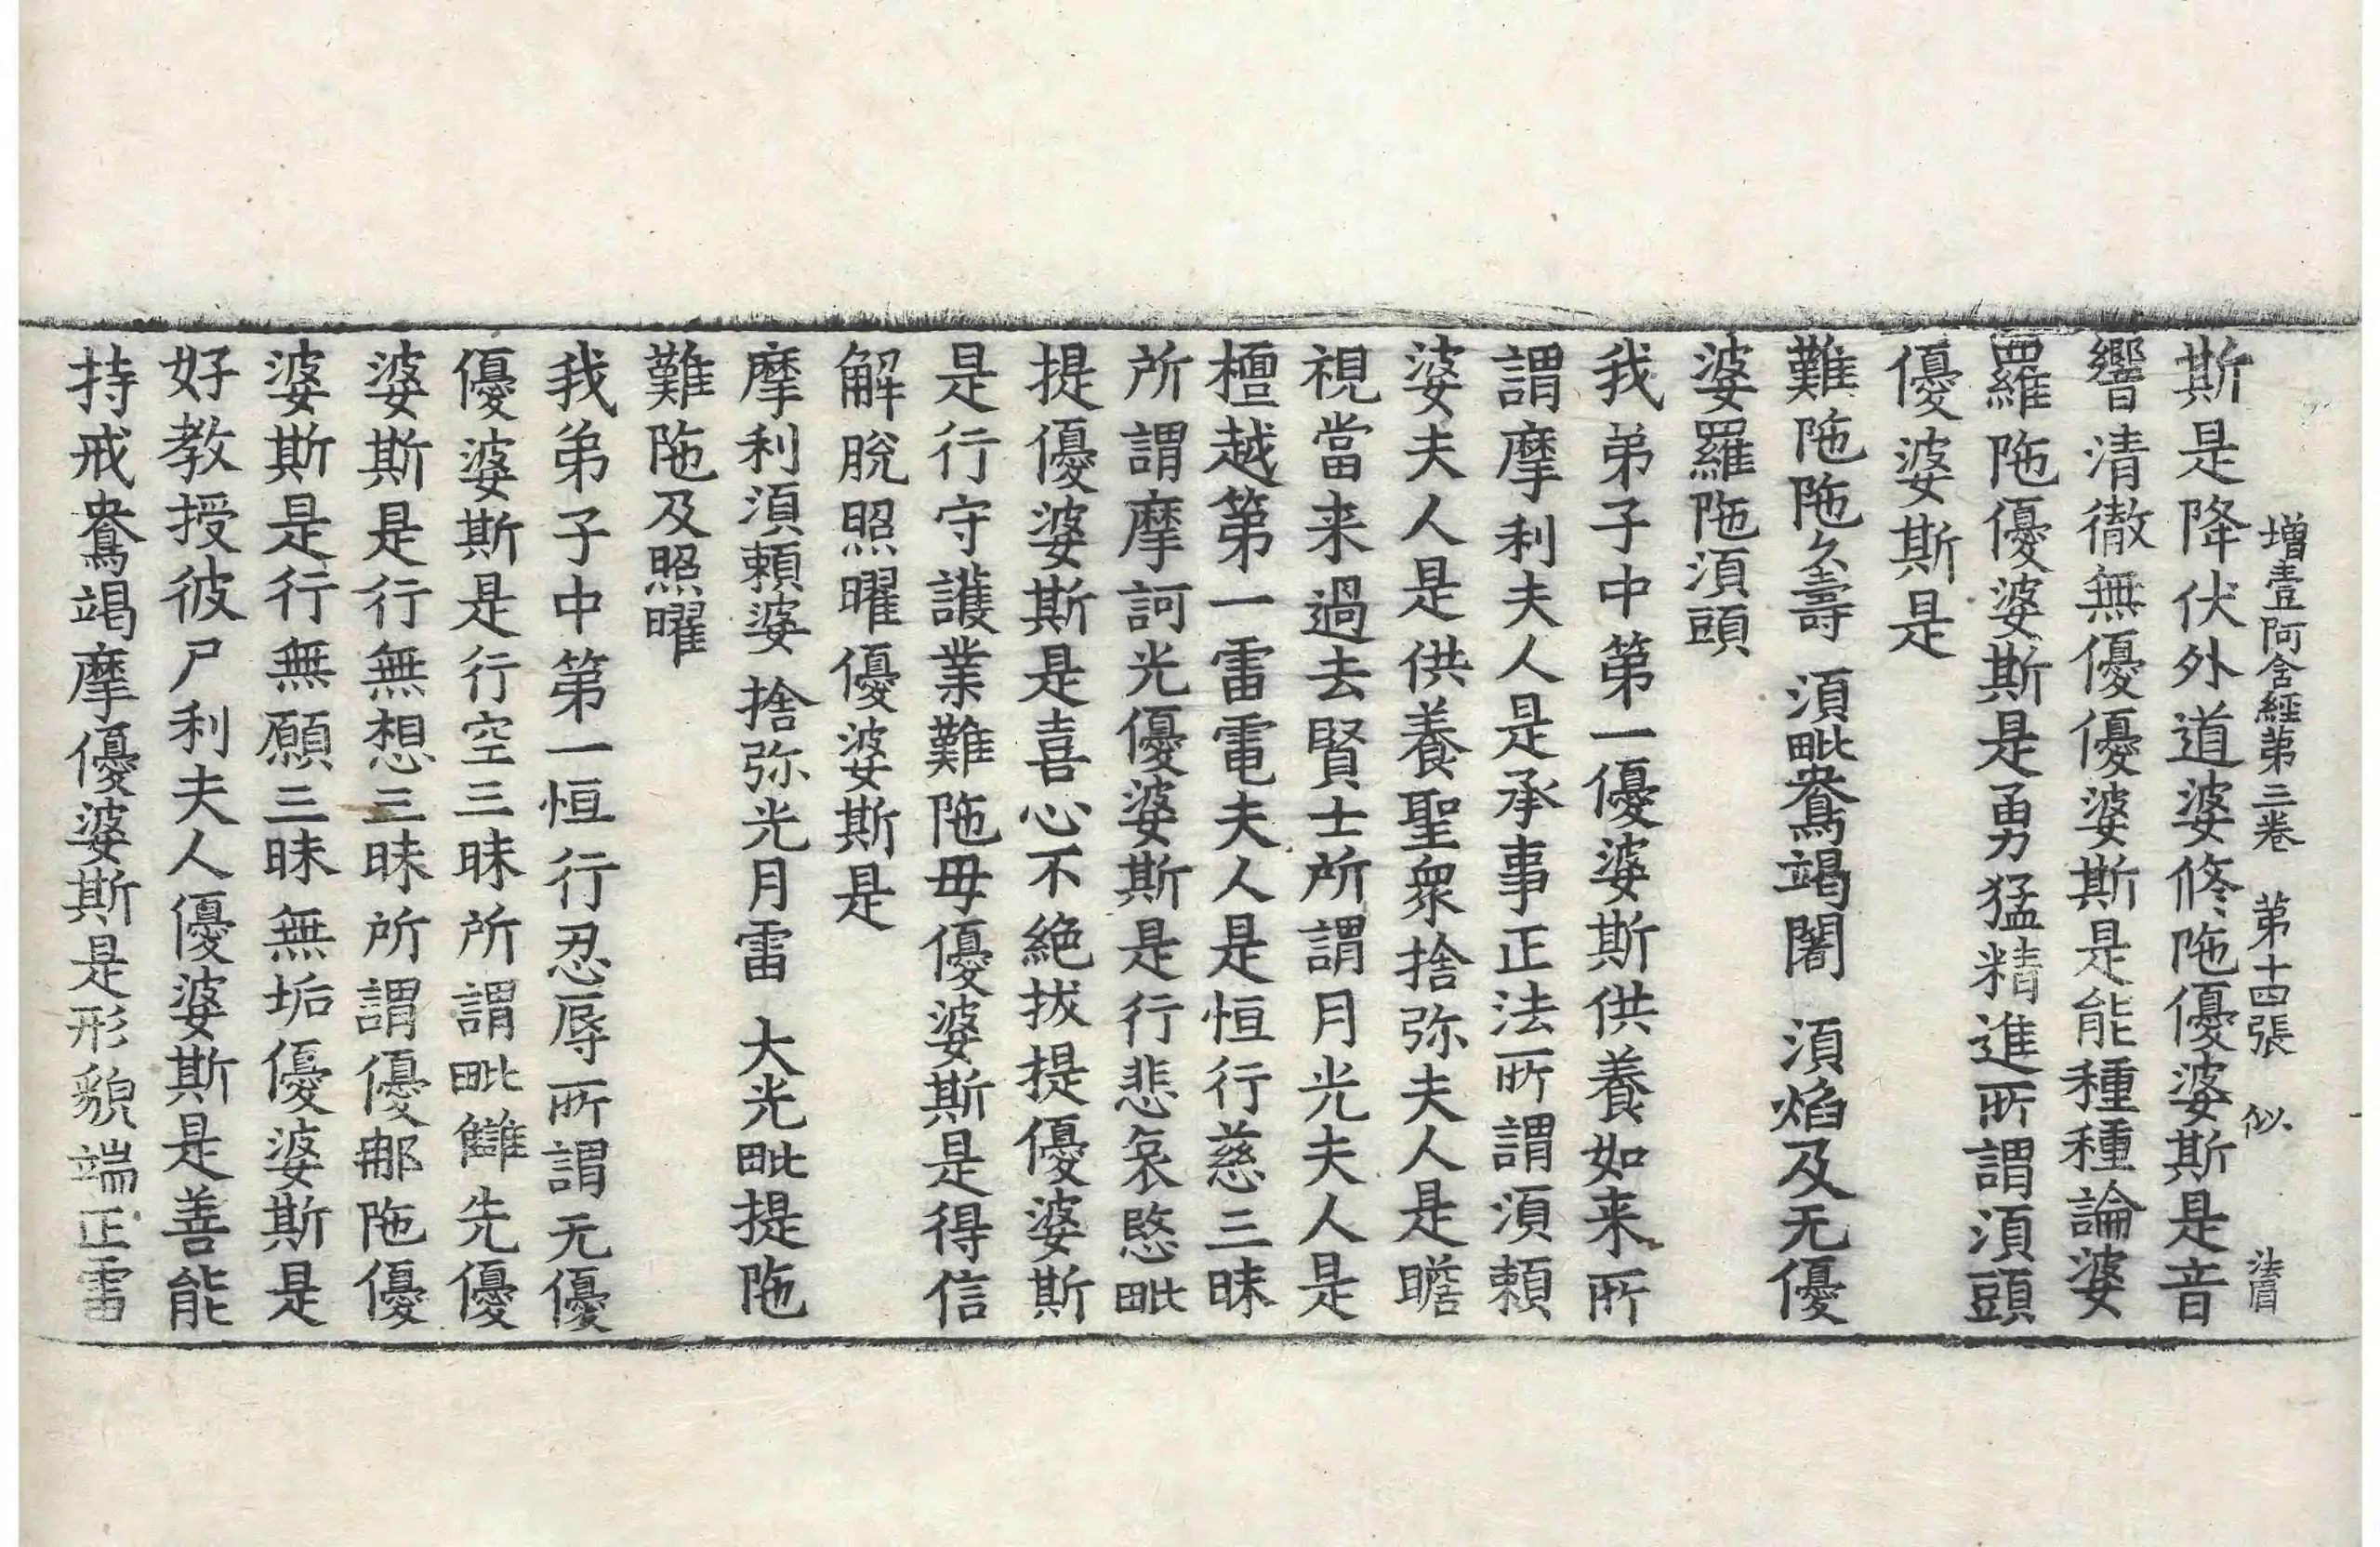 增壹阿含經第三卷 第十四張 似 法眉
斯是降伏外道婆修陁優婆斯是音
響清徹無優優婆斯是能種種論婆
羅陁優婆斯是勇猛精進所謂須頭
優婆斯是
難陁陁久壽 須毗鴦竭闍 須焰及无優
婆羅陁須頭
我弟子中第一優婆斯供養如来所
謂摩利夫人是承事正法所謂須賴
婆夫人是供養聖衆捨弥夫人是瞻
視當来過去賢士所謂月光夫人是
檀越第一雷電夫人是恒行慈三昧
所謂摩訶光優婆斯是行悲哀愍毗
提優婆斯是喜心不絶拔提優婆斯
是行守護業難陁毋優婆斯是得信
解脫照曜優婆斯是
摩利須賴婆 捨弥光月雷 大光毗提陁
難陁及照曜
我弟子中第一恒行忍辱所謂无優
優婆斯是行空三昧所謂毗讎先優
婆斯是行無想三昧所謂優那陁優
婆斯是行無願三昧無垢優婆斯是
好教授彼尸利夫人優婆斯是善能
持戒鴦竭摩優婆斯是形貌端正雷